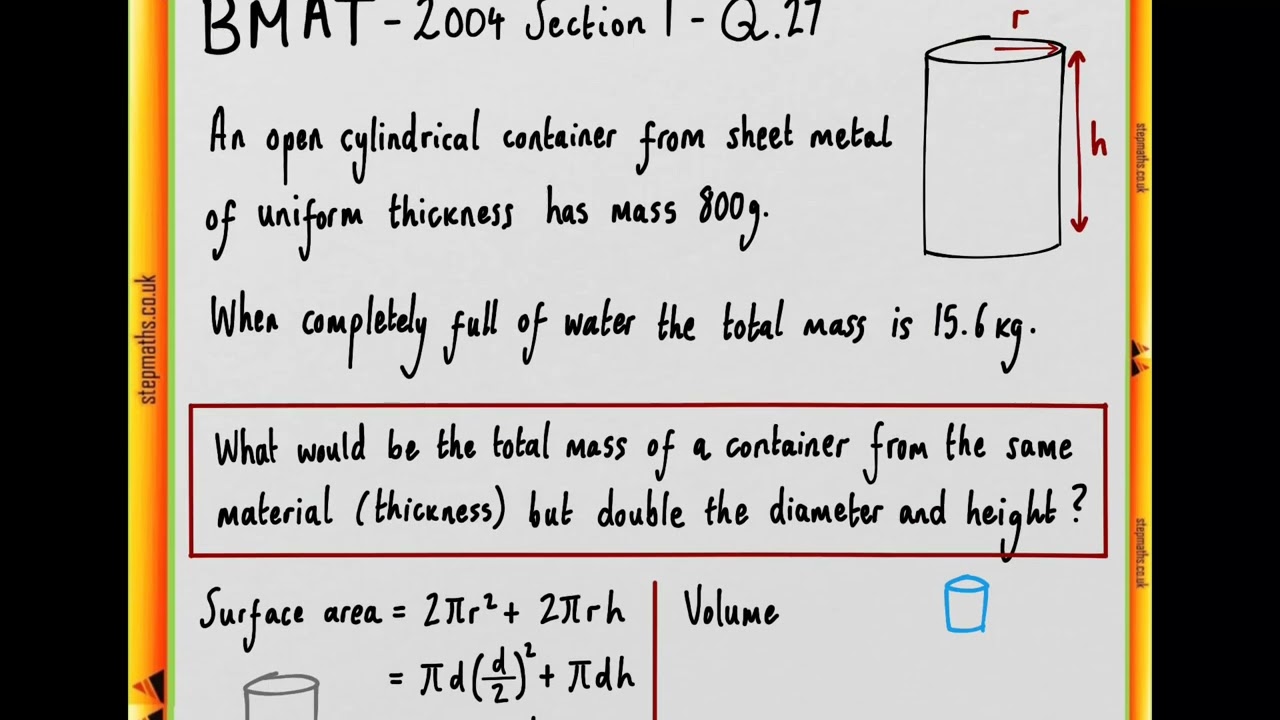 BMAT - 2004 Section 1 - Q.27
r
An open cylindrical container from sheet metal
h
of uniform thickness has mass 800g.
When completely full of water the total mass is 15.6 kg.
What would be the total mass of a container from the same
material (thickness) but double the diameter and height?
Surface area = 2πr² + 2πrh
= πd(d/2)² + πdh
Volume
stepmaths.co.uk
stepmaths.co.uk
stepmaths.co.uk